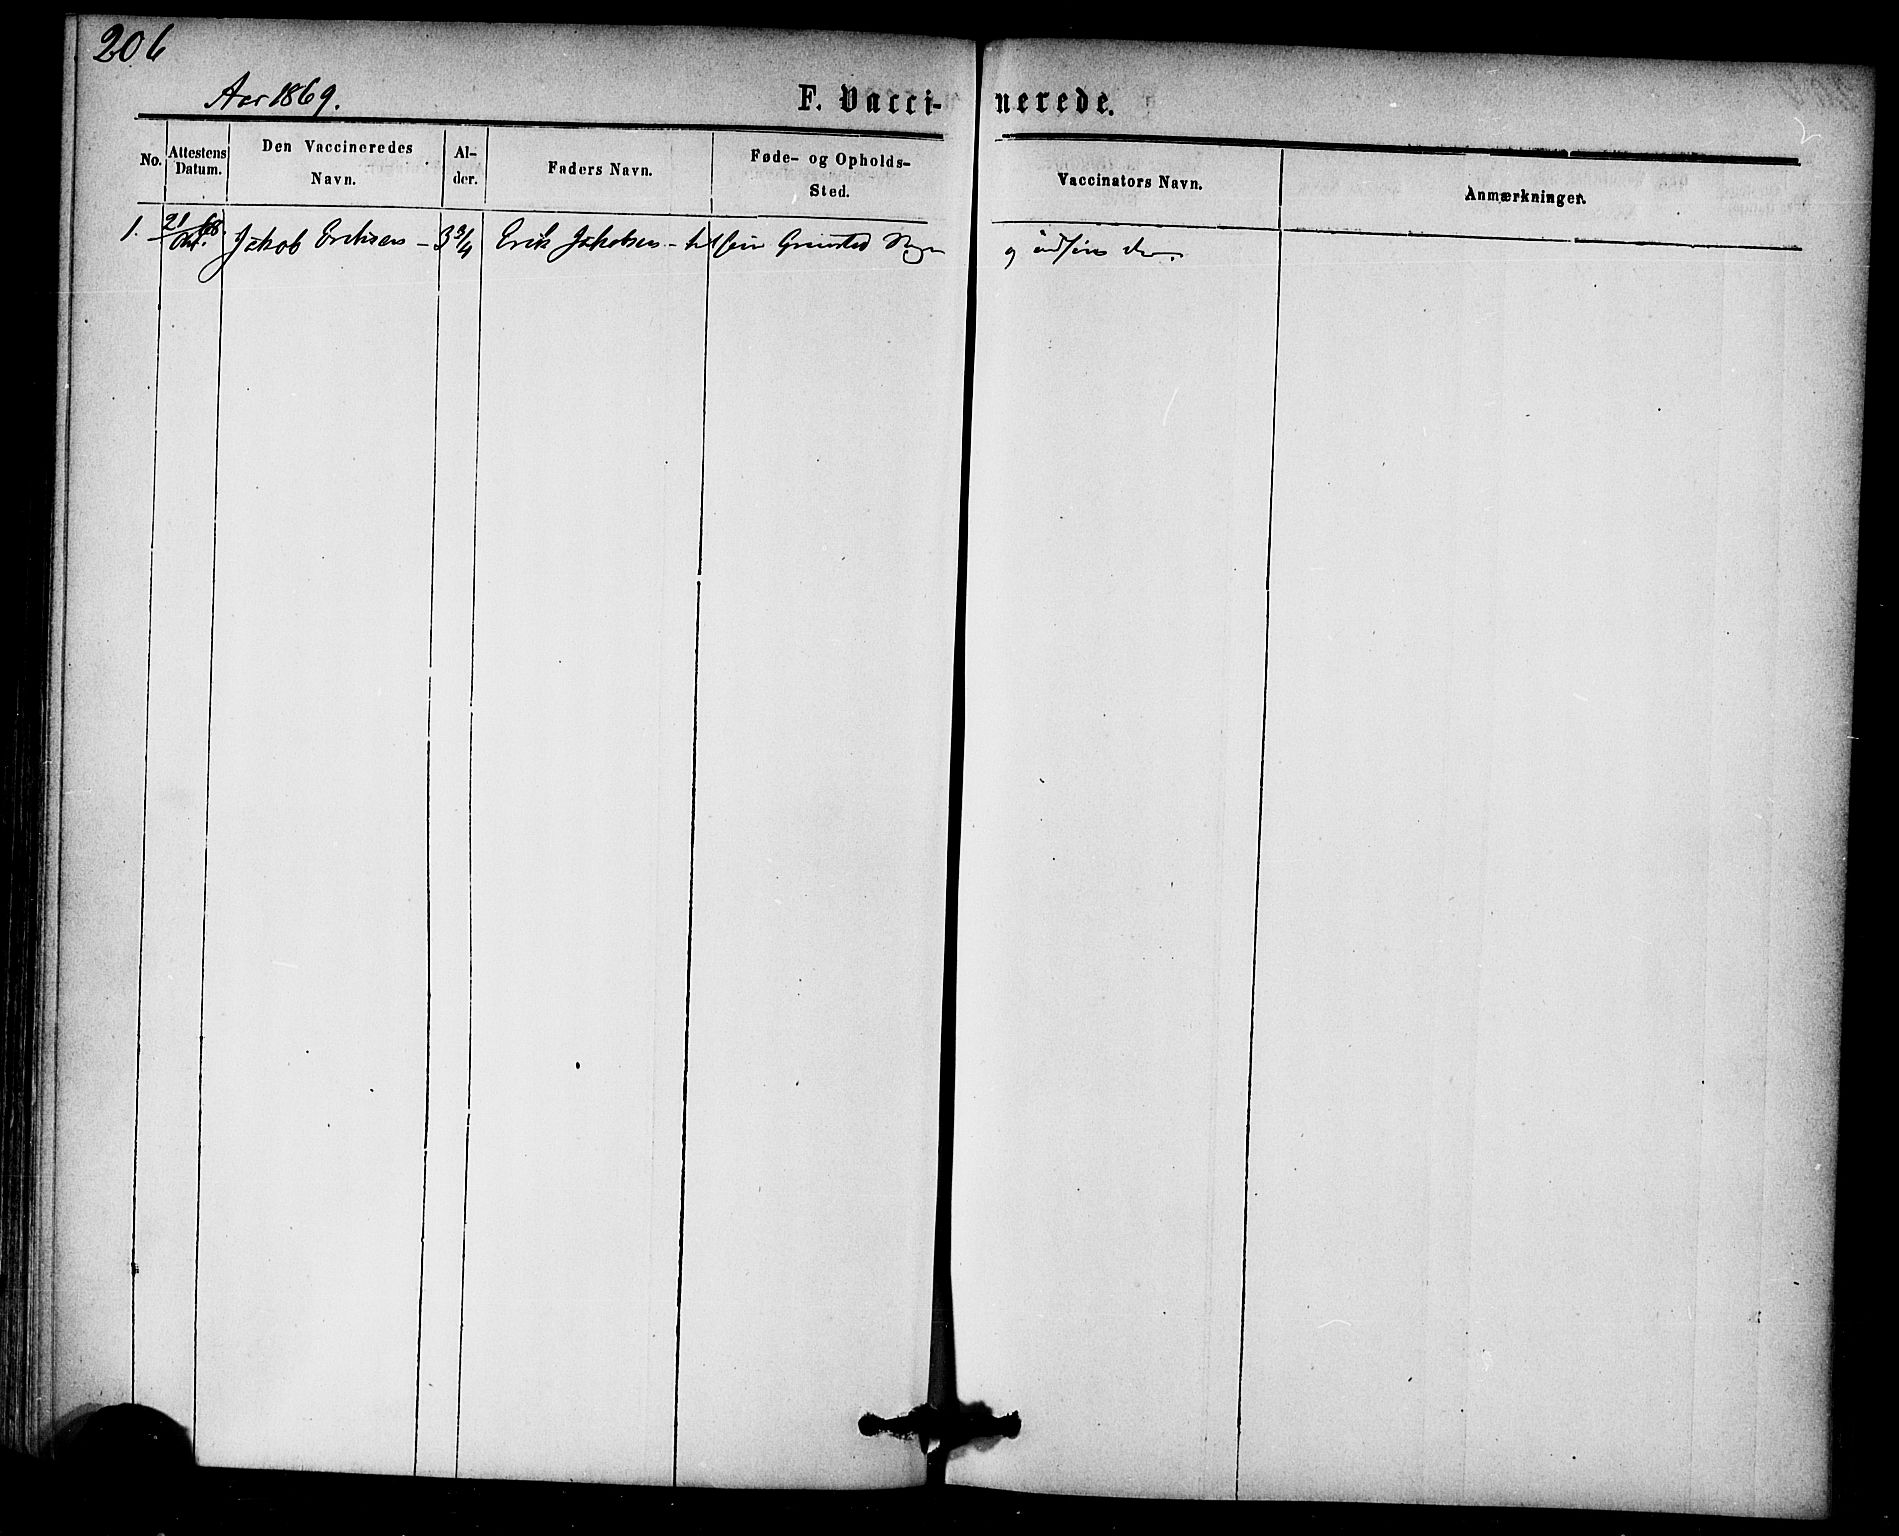 206
Aar 1869.
F. Vacci- nerede.
No. Attestens Datum. Den Vaccineredes Navn. Al- der. Faders Navn. Føde- og Opholds- Sted. Vaccinators Navn. Anmærkninger.
1. 21/Okt. 68. Jakob Eriksen - 3 3/4 Erik Jakobsen - Grimsted